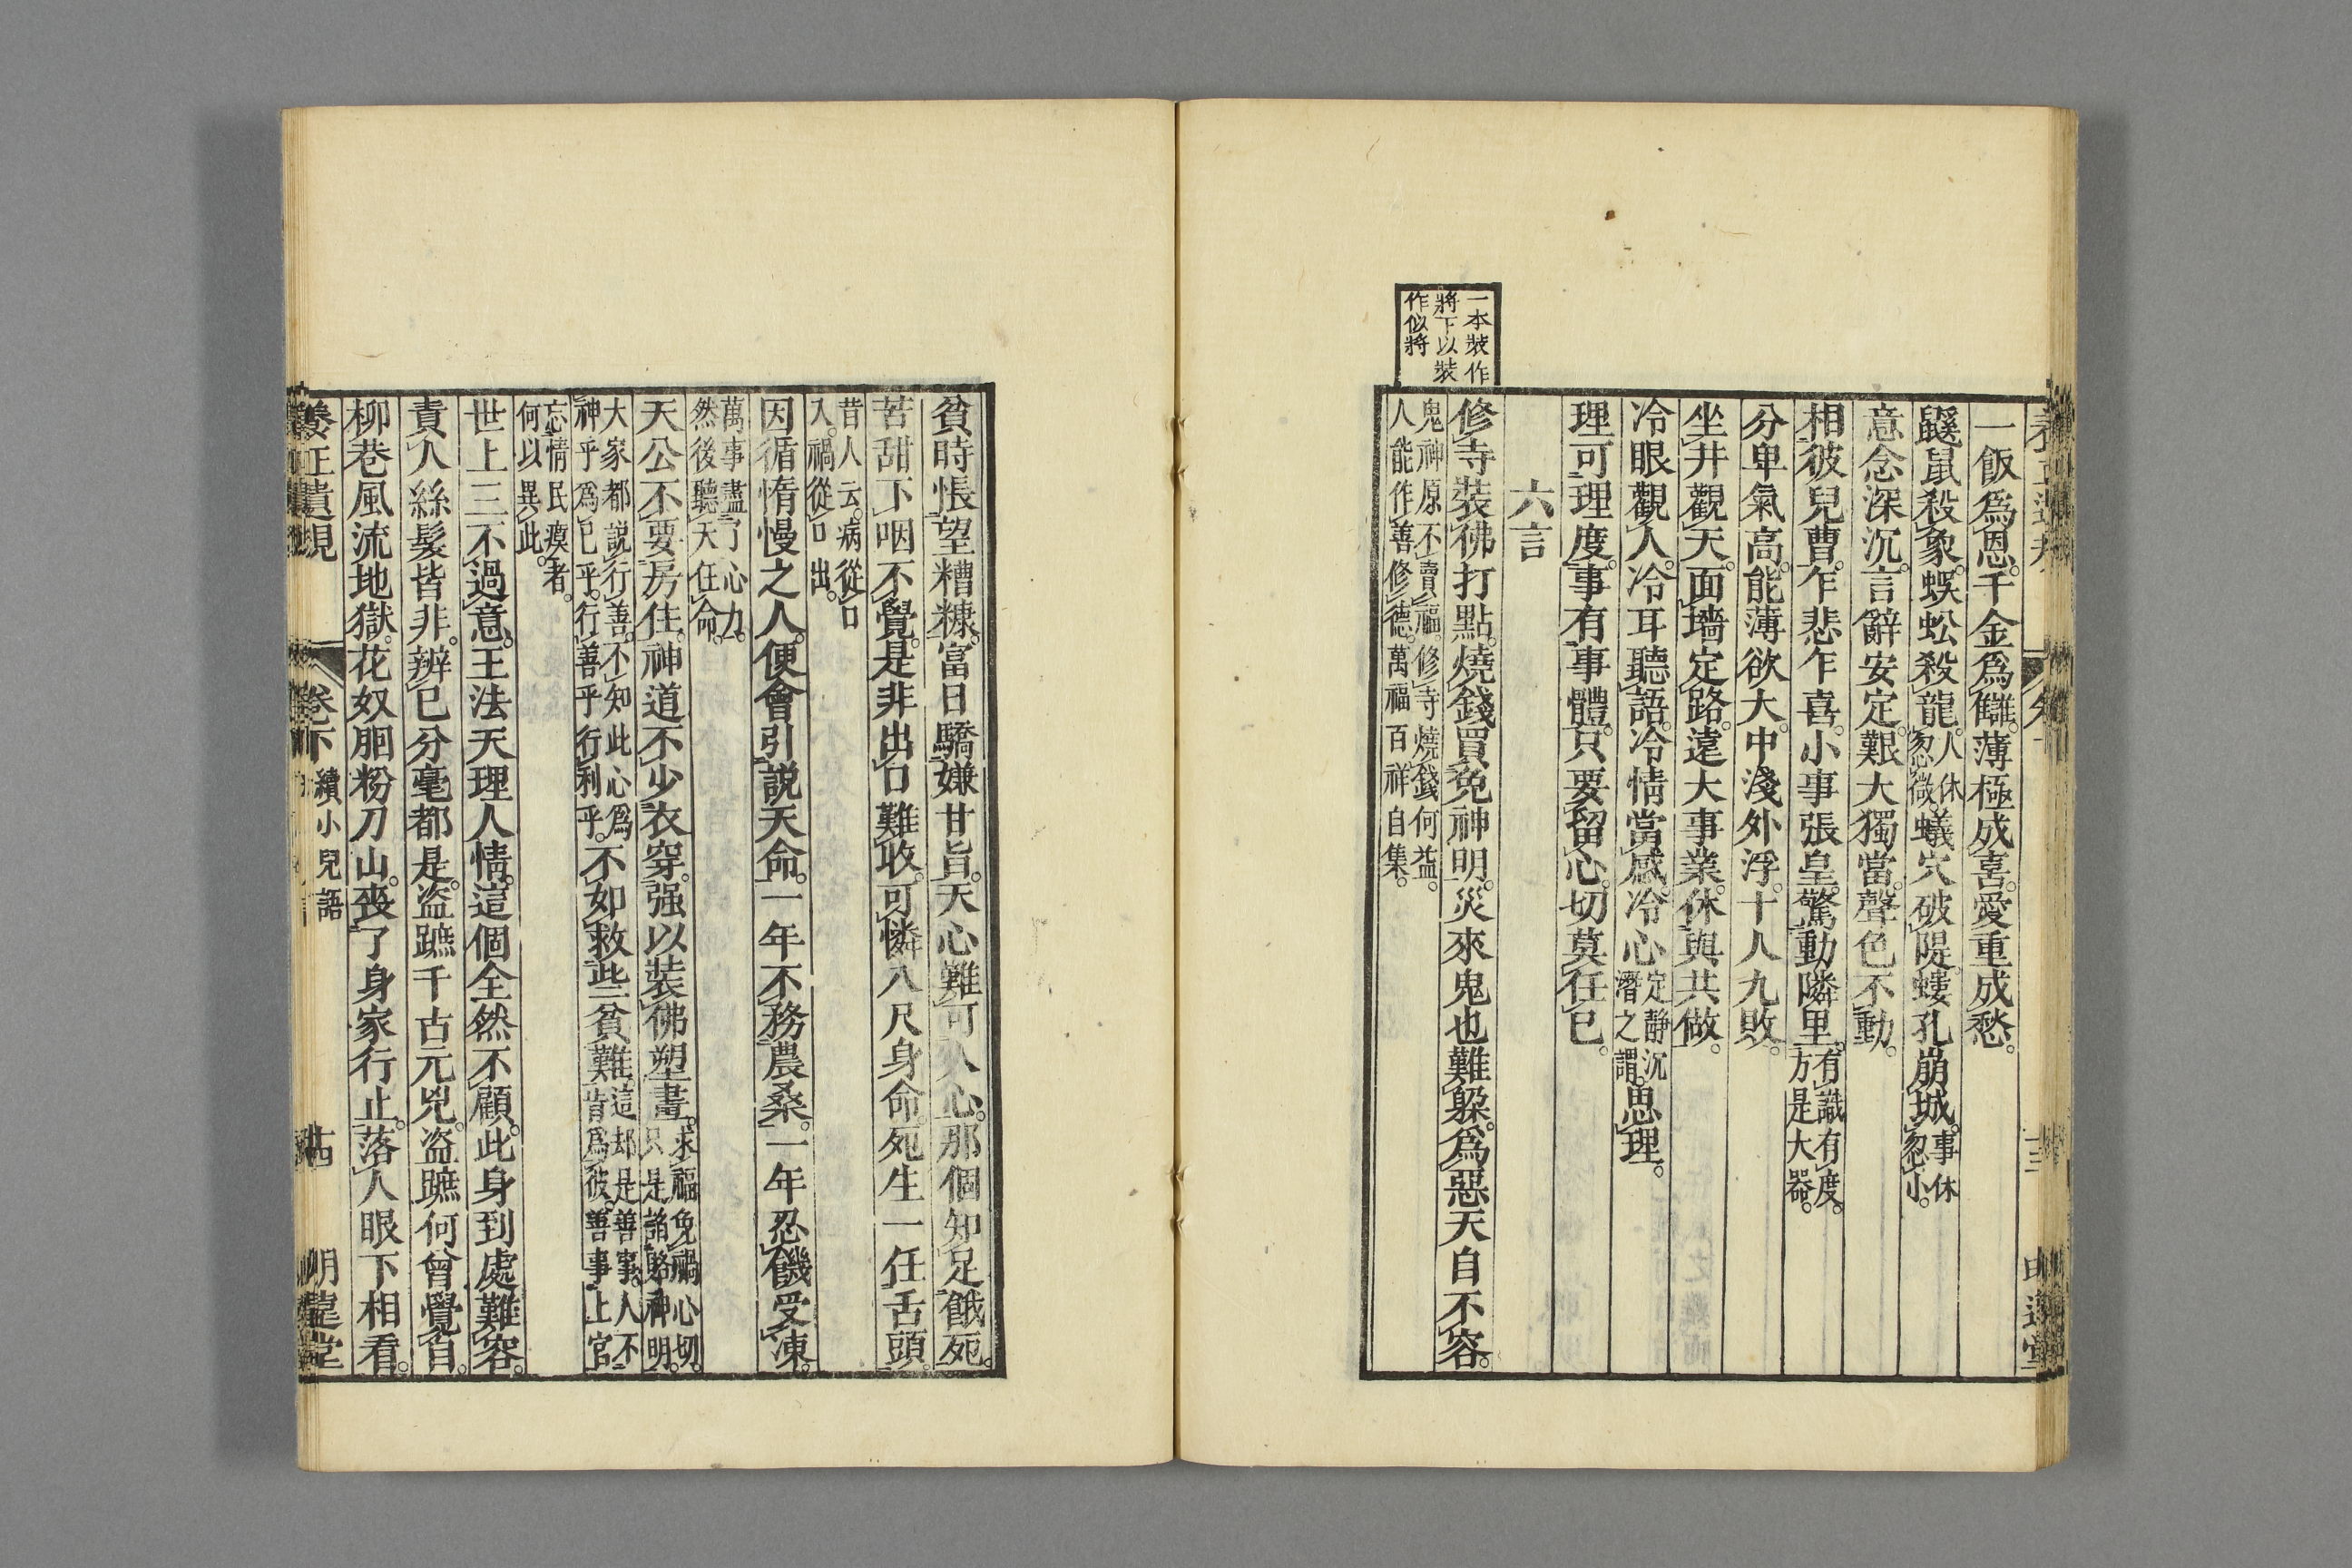 一飯爲恩。千金爲讎。薄極成喜。愛重成愁。
鼷鼠殺象。蜈蚣殺龍。人休忽微。蟻穴破隄。螻孔崩城。事休忽小。
意念深沉。言辭安定。艱大獨當。聲色不動。
相彼兒曹。乍悲乍喜。小事張皇。驚動隣里。有識有度。方是大器。
分卑氣高。能薄欲大。中淺外浮。十人九敗。
坐井觀天。面墻定路。遠大事業。休與共做。
冷眼觀人。冷耳聽語。冷情當感。冷心定靜沉潛之謂。思理。
理可理度。事有事體。只要留心。切莫任已。
六言
一本裝作
將下以裝
作似將
修寺裝彿打點。燒錢買免神明。災來鬼也難躱。爲惡天自不容。
鬼神原不賣福。修寺燒錢何益。
人能作善修德。萬福百祥自集。
貧時悵望糟糠。富日驕嫌甘旨。天心難可人心。那個知足餓死。
苦甜下咽不覺。是非出口難收。可憐八尺身命。死生一任舌頭。
昔人云。病從口
入。禍從口出。
因循惰慢之人。便會引說天命。一年不務農桑。一年忍饑受凍。
萬事盡了心力。
然後聽天任命。
天公不要房住。神道不少衣穿。强以裝佛塑畫。求福免禍心切。只是諂賂神明。
大家都說行善。不知此心爲
神乎爲已乎。行善乎行利乎。不如救些貧難。這却是善事。人不肯爲彼。善事上官
忘情民瘼者。
何以異此。
世上三不過意。王法天理人情。這個全然不顧。此身到處難容。
責人絲髮皆非。辨已分毫都是。盜蹠千古元兇。盜蹠何曾覺自。
柳巷風流地獄。花奴胭粉刀山。喪了身家行止。落人眼下相看。
養正遺規 卷下 續小兒語 十四